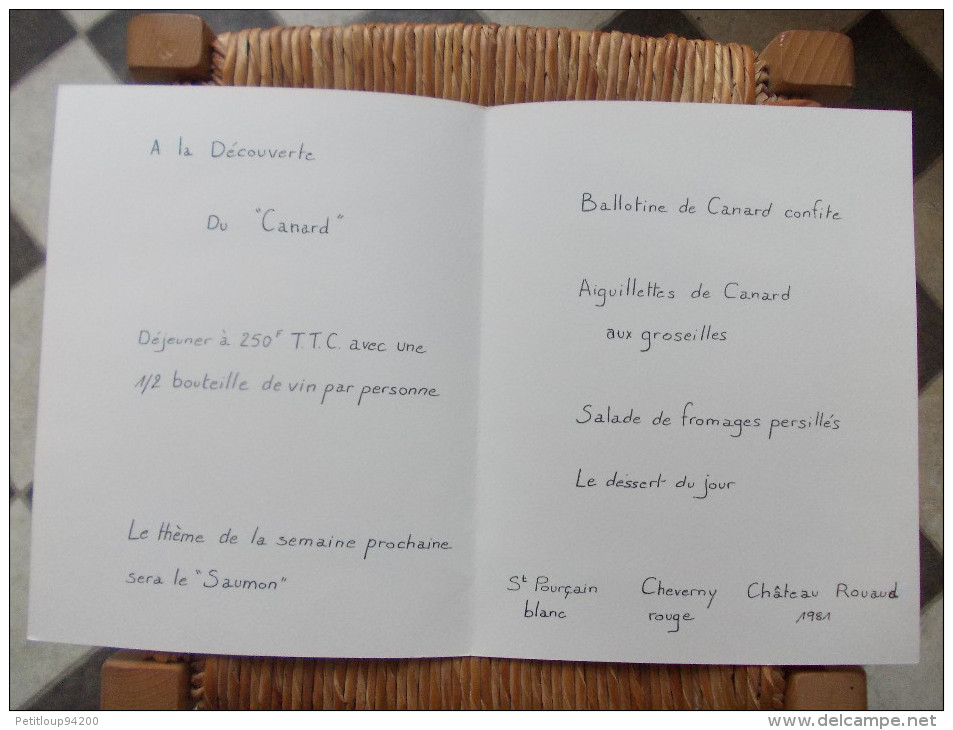 A la Découverte
Du "Canard"
Déjeuner à 250F T.T.C. avec une
1/2 bouteille de vin par personne
Le thème de la semaine prochaine
sera le "Saumon"
Ballotine de Canard confite
Aiguillettes de Canard
aux groseilles
Salade de fromages persillés
Le dessert du jour
St Pourçain
blanc
Cheverny
rouge
Château Rouaud
1981
Petitloup94200
www.delcampe.net